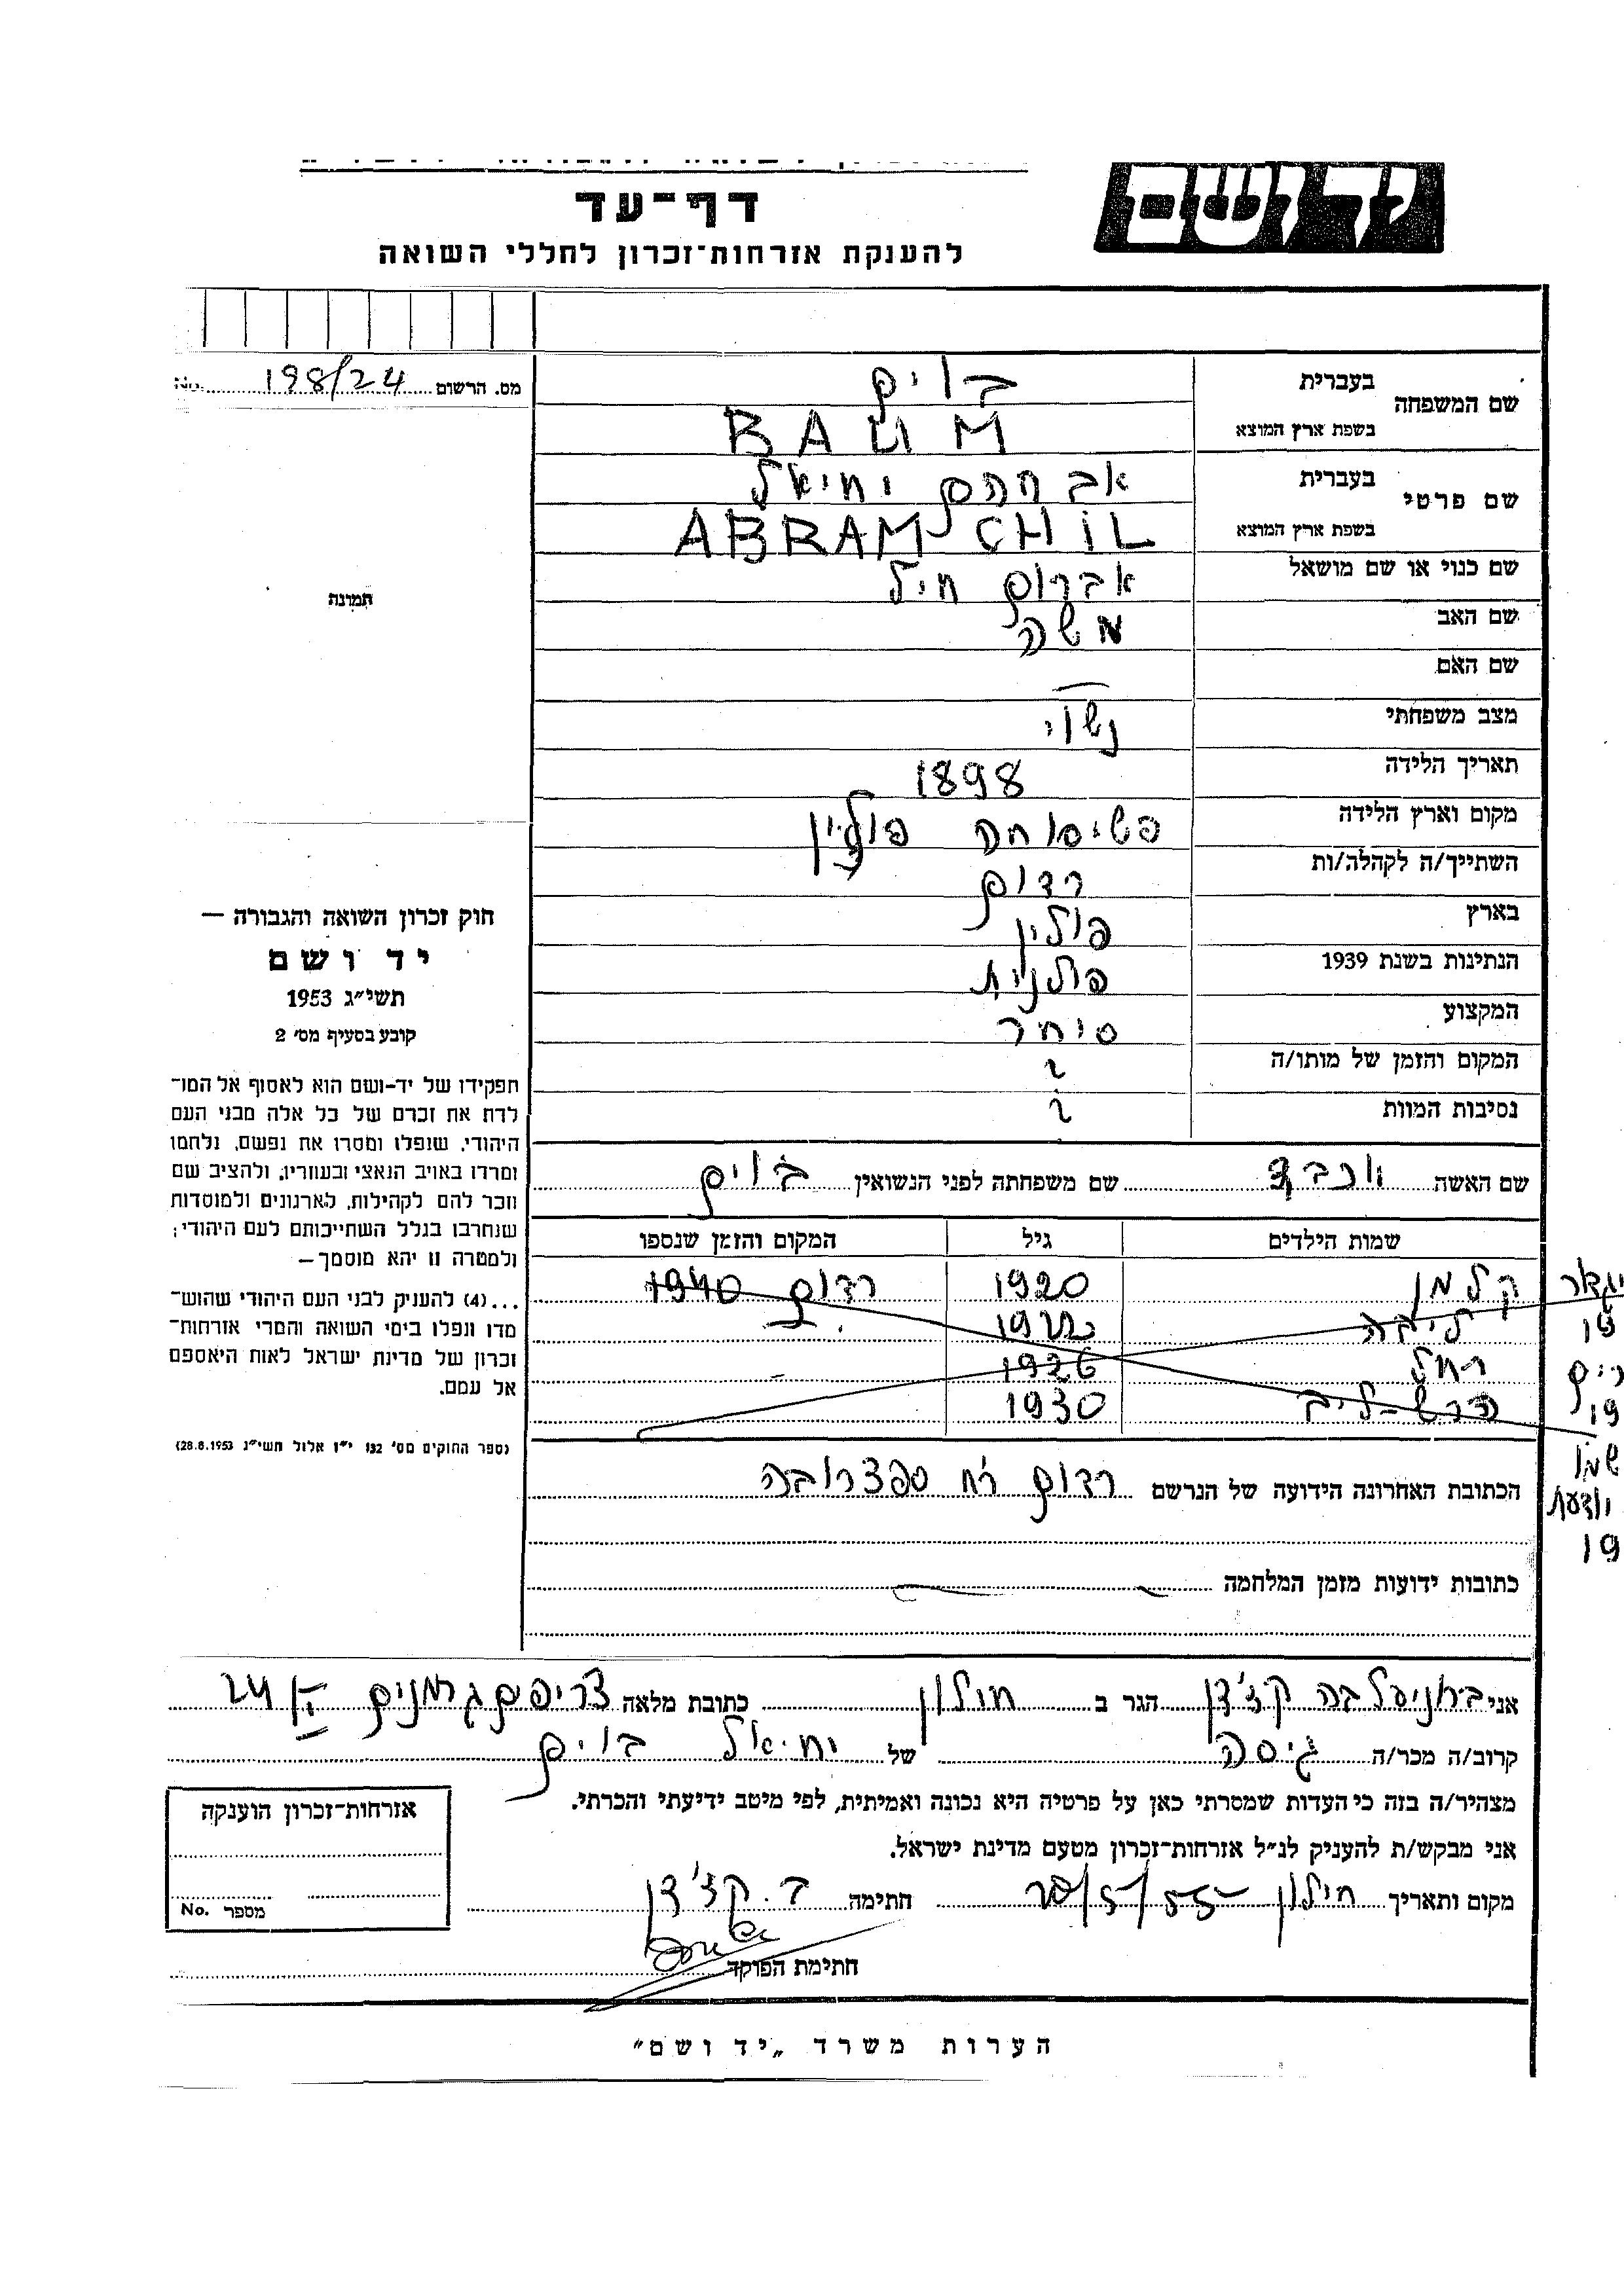 יד ושם
דף־עד
להענקת אזרחות־זכרון לחללי השואה
מס. הרשום 198/24 No.
שם המשפחה
בעברית בוים
בשפת ארץ המוצא BAUM
שם פרטי
בעברית אברהם יחיאל
בשפת ארץ המוצא ABRAM CHIL
שם כנוי או שם מושאל אברום חיל
שם האב משה
שם האם —
מצב משפחתי נשוי
תאריך הלידה 1898
מקום וארץ הלידה פשיסוחה פולין
השתייך/ה לקהלה/ות רדום
בארץ פולין
הנתינות בשנת 1939 פולנית
המקצוע סוחר
המקום והזמן של מותו/ה ?
נסיבות המוות ?
תמונה
חוק זכרון השואה והגבורה —
יד ושם
תשי״ג 1953
קובע בסעיף מס׳ 2
תפקידו של יד-ושם הוא לאסוף אל המו־
לדת את זכרם של כל אלה מבני העם
היהודי, שנפלו ומסרו את נפשם, נלחמו
ומרדו באויב הנאצי ובעוזריו, ולהציב שם
וזכר להם לקהילות, לארגונים ולמוסדות
שנחרבו בגלל השתייכותם לעם היהודי;
ולמטרה זו יהא מוסמך —
...(4) להעניק לבני העם היהודי שהוש־
מדו ונפלו בימי השואה והמרי אזרחות־
זכרון של מדינת ישראל לאות היאספם
אל עמם.
(ספר החוקים מס׳ 132 י״ז אלול תשי״ג 28.8.1953)
שם האשה שם משפחתה לפני הנשואין בוים
שמות הילדים גיל המקום והזמן שנספו
קלמן 1920 רדום 1940
ליבה 1922
רחל 1926
הרש-ליב 1930
הכתובת האחרונה הידועה של הנרשם רדום רח׳ ספצרובה
כתובות ידועות מזמן המלחמה —
אני הגר ב חולון כתובת מלאה 24
קרוב/ה מכר/ה גיסה של יחיאל בוים
מצהיר/ה בזה כי העדות שמסרתי כאן על פרטיה היא נכונה ואמיתית, לפי מיטב ידיעתי והכרתי.
אני מבקש/ת להעניק לנ״ל אזרחות־זכרון מטעם מדינת ישראל.
מקום ותאריך חולון חתימה ב. קז׳דן
חתימת הפוקד
אזרחות־זכרון הוענקה
מספר No.
הערות משרד „יד ושם״